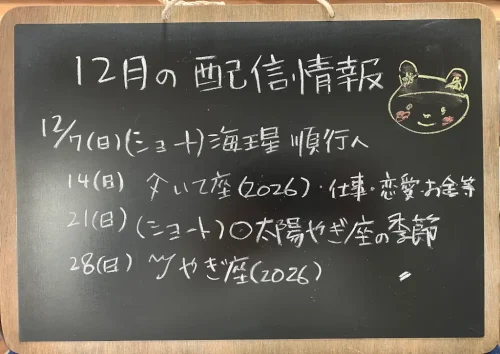 12月の配信情報
12/7(日)(ショート)海王星 順行へ
14(日) ♐いて座(2026)・仕事・恋愛・お金等
21(日)(ショート)○太陽やぎ座の季節
28(日) ♑やぎ座(2026)